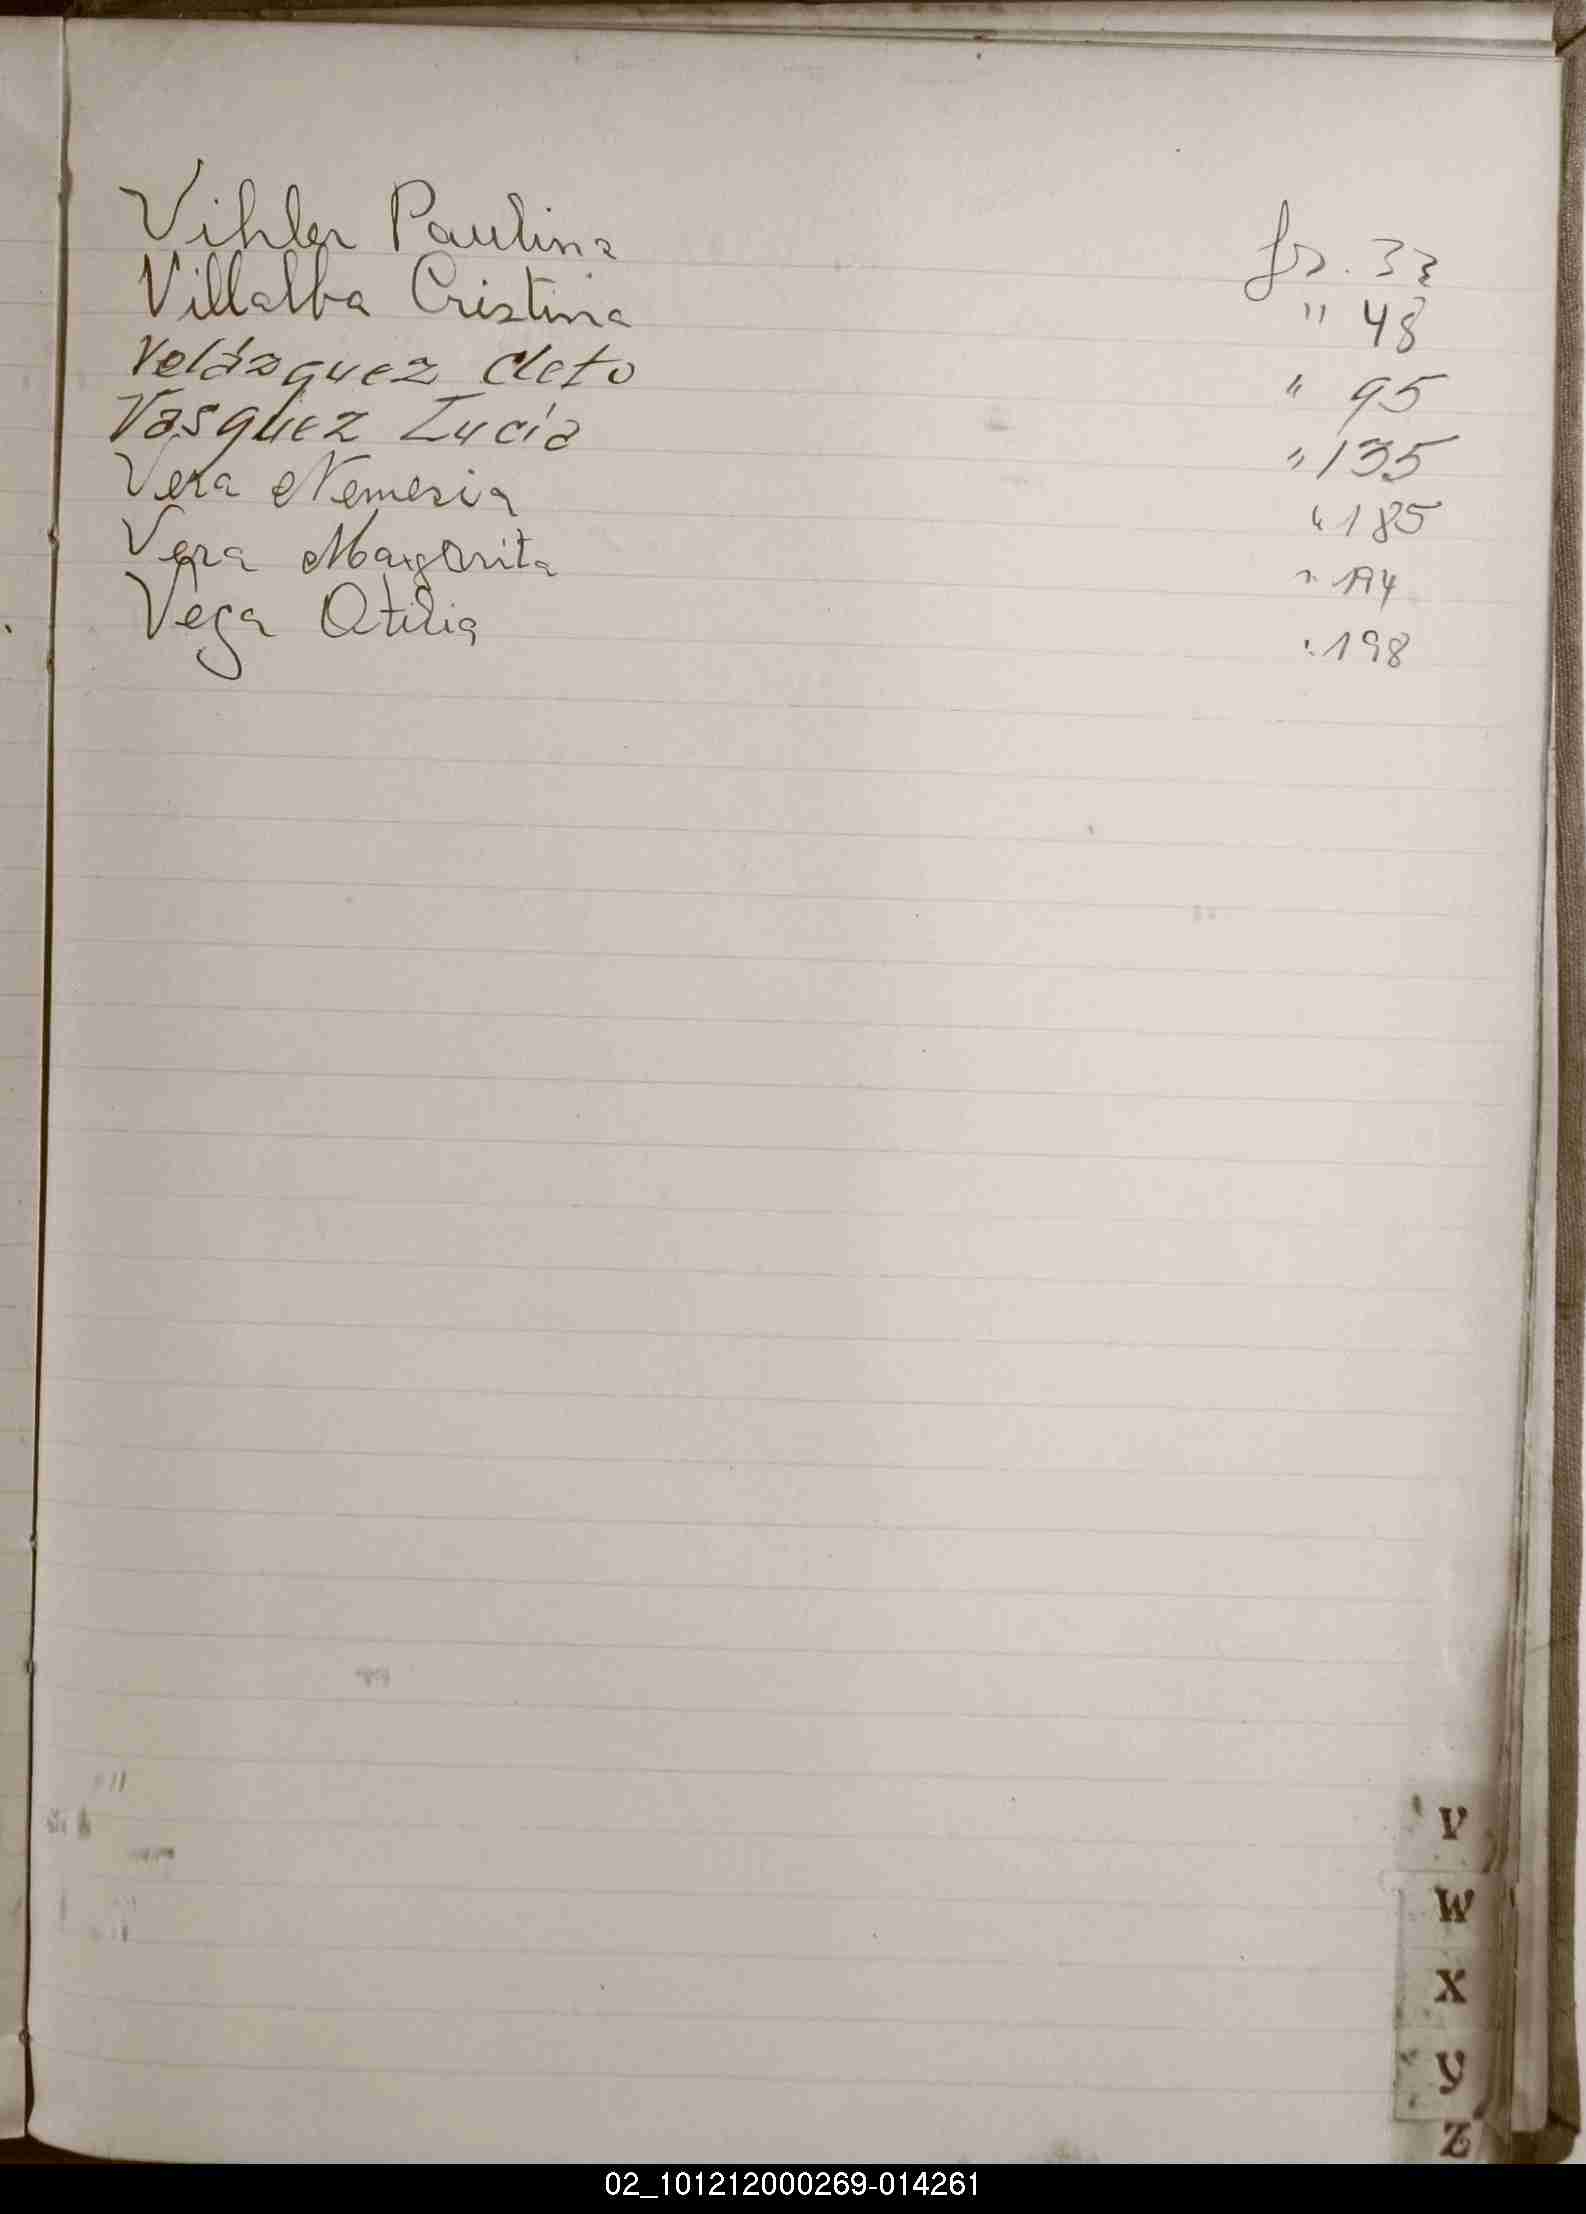 Vihler Paulina fs. 33
Villalba Cristina " 48
Velázquez Cleto " 95
Vasquez Lucía " 135
Vera Nemesia " 185
Vera Margarita " 194
Vega Otilia " 198
V
W
X
Y
Z
02_101212000269-014261